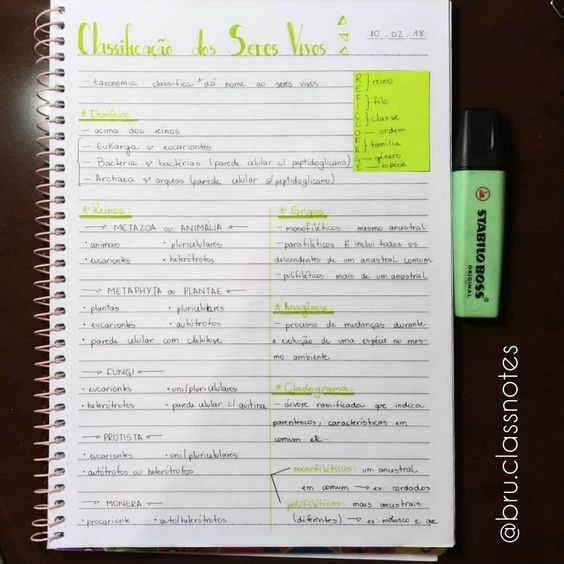 Classificação dos Seres Vivos
10.02.18
- taxonomia: classifica e dá nome ao seres vivos
RE } reino
FI } filo
CL } classe
O - ordem
FA } família
G - gênero
E - espécie
* Domínios:
- acima dos reinos
- Eukarya → eucariontes
- Bacteria → bactérias (parede celular c/ peptidoglicano)
- Archaea → arqueas (parede celular s/ peptidoglicano)
* Reinos:
→ METAZOA ou ANIMALIA ←
• animais • pluricelulares
• eucariontes • heterótrofos
→ METAPHYTA ou PLANTAE ←
• plantas • pluricelulares
• eucariontes • autótrofos
• parede celular com celulose
→ FUNGI ←
• eucariontes • uni/pluricelulares
• heterótrofos • parede celular c/ quitina
→ PROTISTA ←
• eucariontes • uni/pluricelulares
• autótrofos ou heterótrofos
→ MONERA ←
• procarionte • auto/heterótrofos
* Grupos:
- monofiléticos: mesmo ancestral
- parafiléticos: Ñ inclui todos os
descendentes de um ancestral comum
- polifiléticos: mais de um ancestral
* Anagênese:
- processo de mudanças durante
a evolução de uma espécie no mes-
mo ambiente
* Cladograma:
- árvore ramificada que indica
parentescos, características em
comum etc
monofiléticas: um ancestral
em comum → ex: cordados
polifiléticos: mais ancestrais
(diferentes) → ex: molusco e ave
STABILO BOSS
ORIGINAL
@bru.classnotes